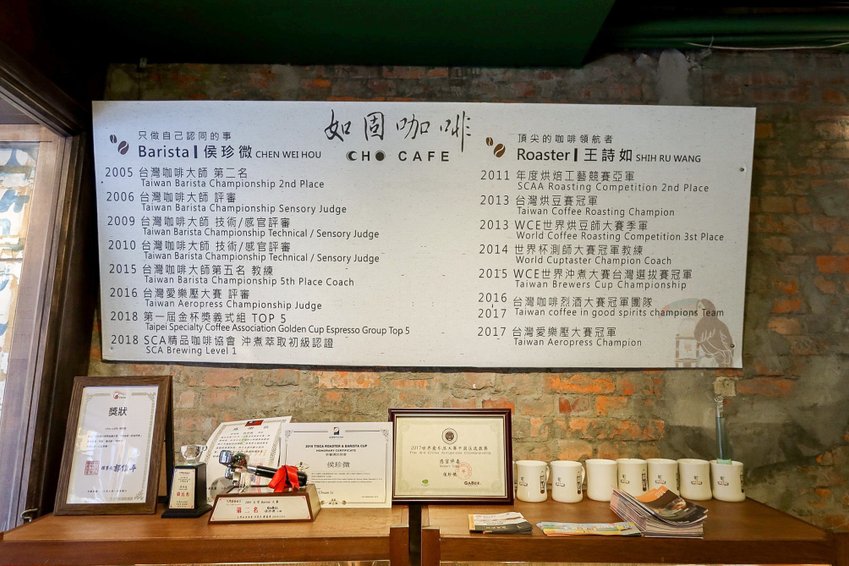 如固咖啡
CHO CAFE
只做自己認同的事
Barista 侯珍微 CHEN WEI HOU
2005 台灣咖啡大師 第二名
Taiwan Barista Championship 2nd Place
2006 台灣咖啡大師 評審
Taiwan Barista Championship Sensory Judge
2009 台灣咖啡大師 技術/感官評審
Taiwan Barista Championship Technical / Sensory Judge
2010 台灣咖啡大師 技術/感官評審
Taiwan Barista Championship Technical / Sensory Judge
2015 台灣咖啡大師第五名 教練
Taiwan Barista Championship 5th Place Coach
2016 台灣愛樂壓大賽 評審
Taiwan Aeropress Championship Judge
2018 第一屆金杯獎義式組 TOP 5
Taipei Specialty Coffee Association Golden Cup Espresso Group Top 5
2018 SCA精品咖啡協會 沖煮萃取初級認證
SCA Brewing Level 1
頂尖的咖啡領航者
Roaster 王詩如 SHIH RU WANG
2011 年度烘焙工藝競賽亞軍
SCAA Roasting Competition 2nd Place
2013 台灣烘豆賽冠軍
Taiwan Coffee Roasting Champion
2013 WCE世界烘豆師大賽季軍
World Coffee Roasting Competition 3st Place
2014 世界杯測師大賽冠軍教練
World Cuptaster Champion Coach
2015 WCE世界沖煮大賽台灣選拔賽冠軍
Taiwan Brewers Cup Championship
2016 台灣咖啡烈酒大賽冠軍團隊
2017 Taiwan coffee in good spirits champions Team
2017 台灣愛樂壓大賽冠軍
Taiwan Aeropress Champion
獎狀
HONORARY CERTIFICATE
侯珍微
第二名